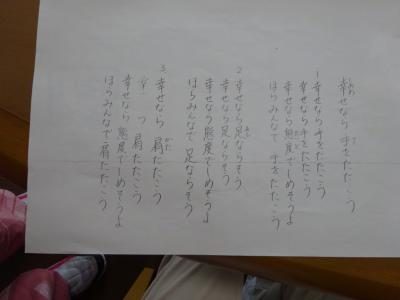 幸せなら手をたたこう
1 幸せなら手をたたこう
幸せなら手をたたこう
幸せなら態度でしめそうよ
ほらみんなで手をたたこう
2 幸せなら足ならそう
幸せなら足ならそう
幸せなら態度でしめそうよ
ほらみんなで足ならそう
3 幸せなら肩たたこう
幸 〃 つ 肩たたこう
幸せなら態度でしめそうよ
ほらみんなで肩たたこう